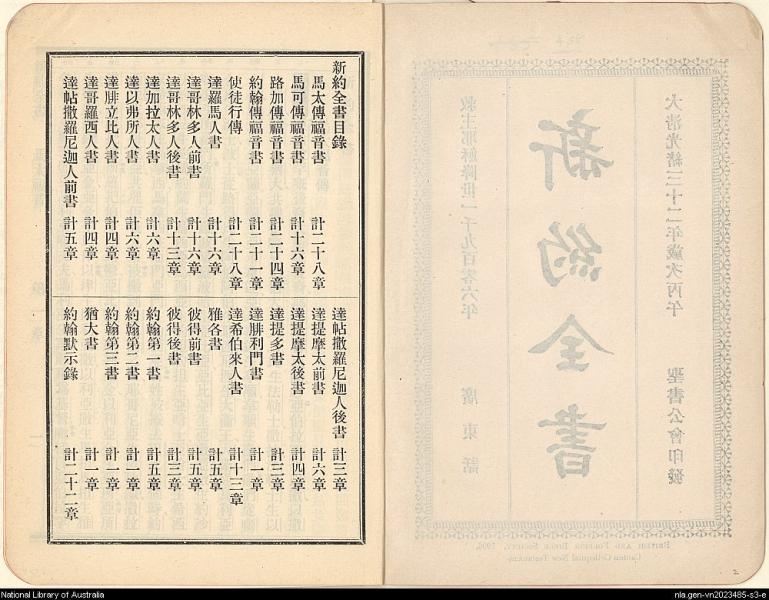 大清光緒三十二年歲次丙午 聖書公會印發
新約全書
救主耶穌降世一千九百零六年 廣東話
BRITISH AND FOREIGN BIBLE SOCIETY, 1906.
Canton Colloquial New Testament.
2
新約全書目錄
馬太傳福音書 計二十八章
馬可傳福音書 計十六章
路加傳福音書 計二十四章
約翰傳福音書 計二十一章
使徒行傳 計二十八章
達羅馬人書 計十六章
達哥林多人前書 計十六章
達哥林多人後書 計十三章
達加拉太人書 計六章
達以弗所人書 計六章
達腓立比人書 計四章
達哥羅西人書 計四章
達帖撒羅尼迦人前書 計五章
達帖撒羅尼迦人後書 計三章
達提摩太前書 計六章
達提摩太後書 計四章
達提多書 計三章
達腓利門書 計一章
達希伯來人書 計十三章
雅各書 計五章
彼得前書 計五章
彼得後書 計三章
約翰第一書 計五章
約翰第二書 計一章
約翰第三書 計一章
猶大書 計一章
約翰默示錄 計二十二章
National Library of Australia
nla.gen-vn2023485-s3-e